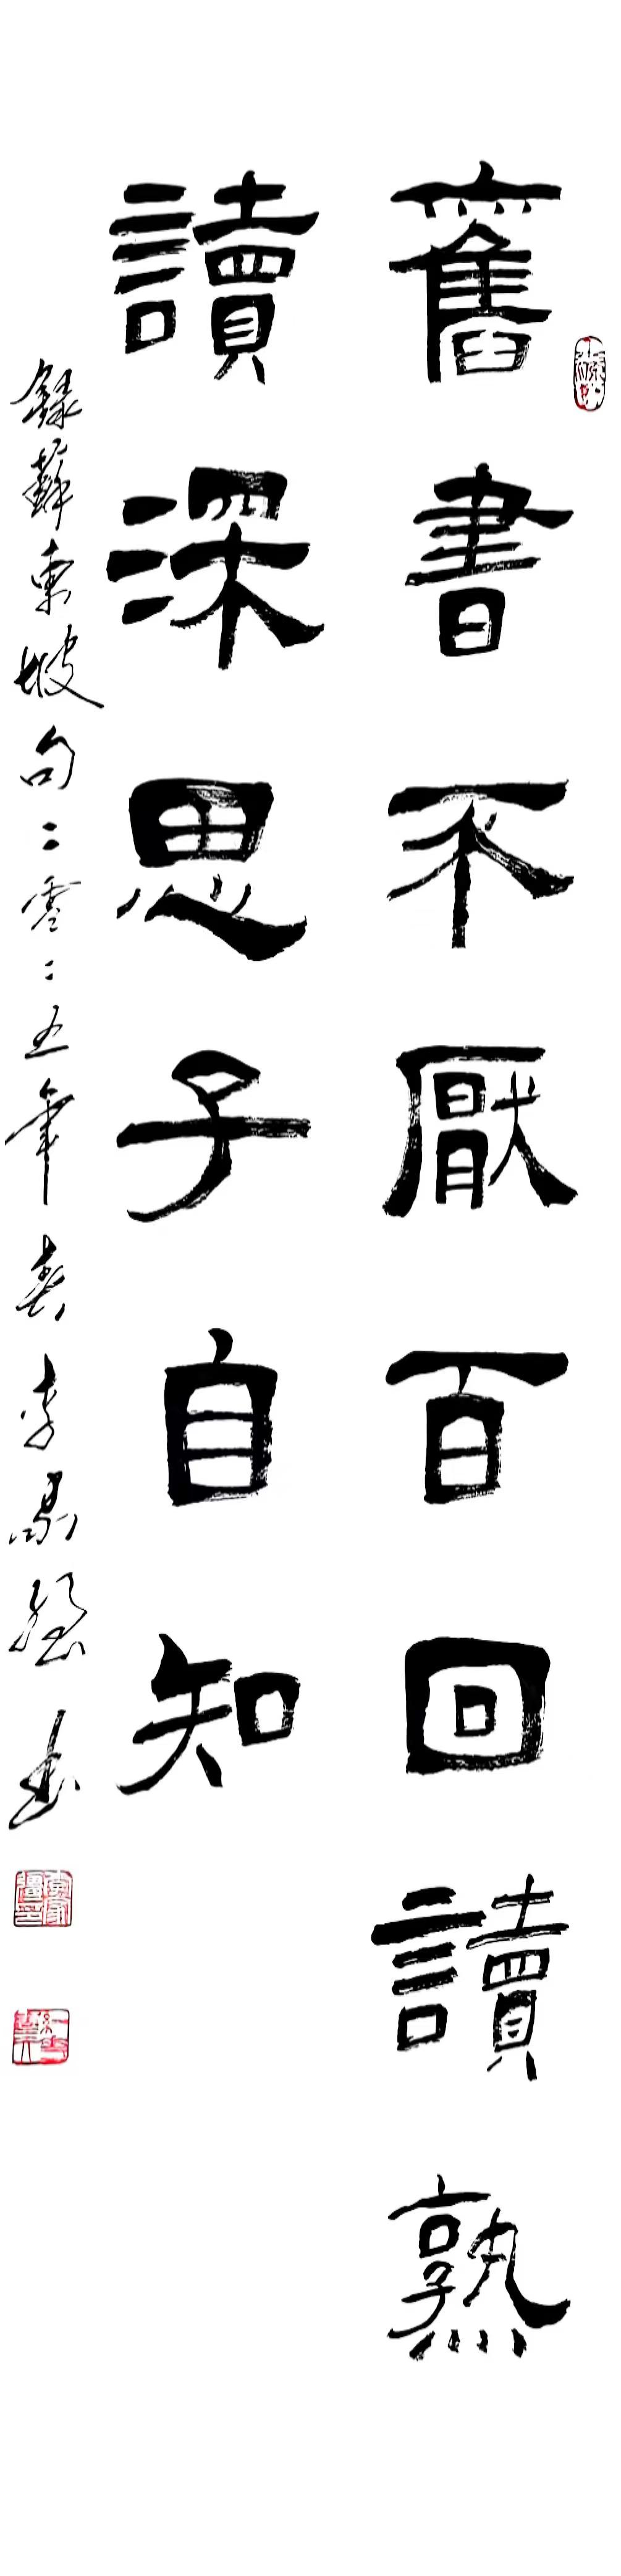 舊書不厭百回讀熟
讀深思子自知
錄蘇東坡句二零二五年春李家強書